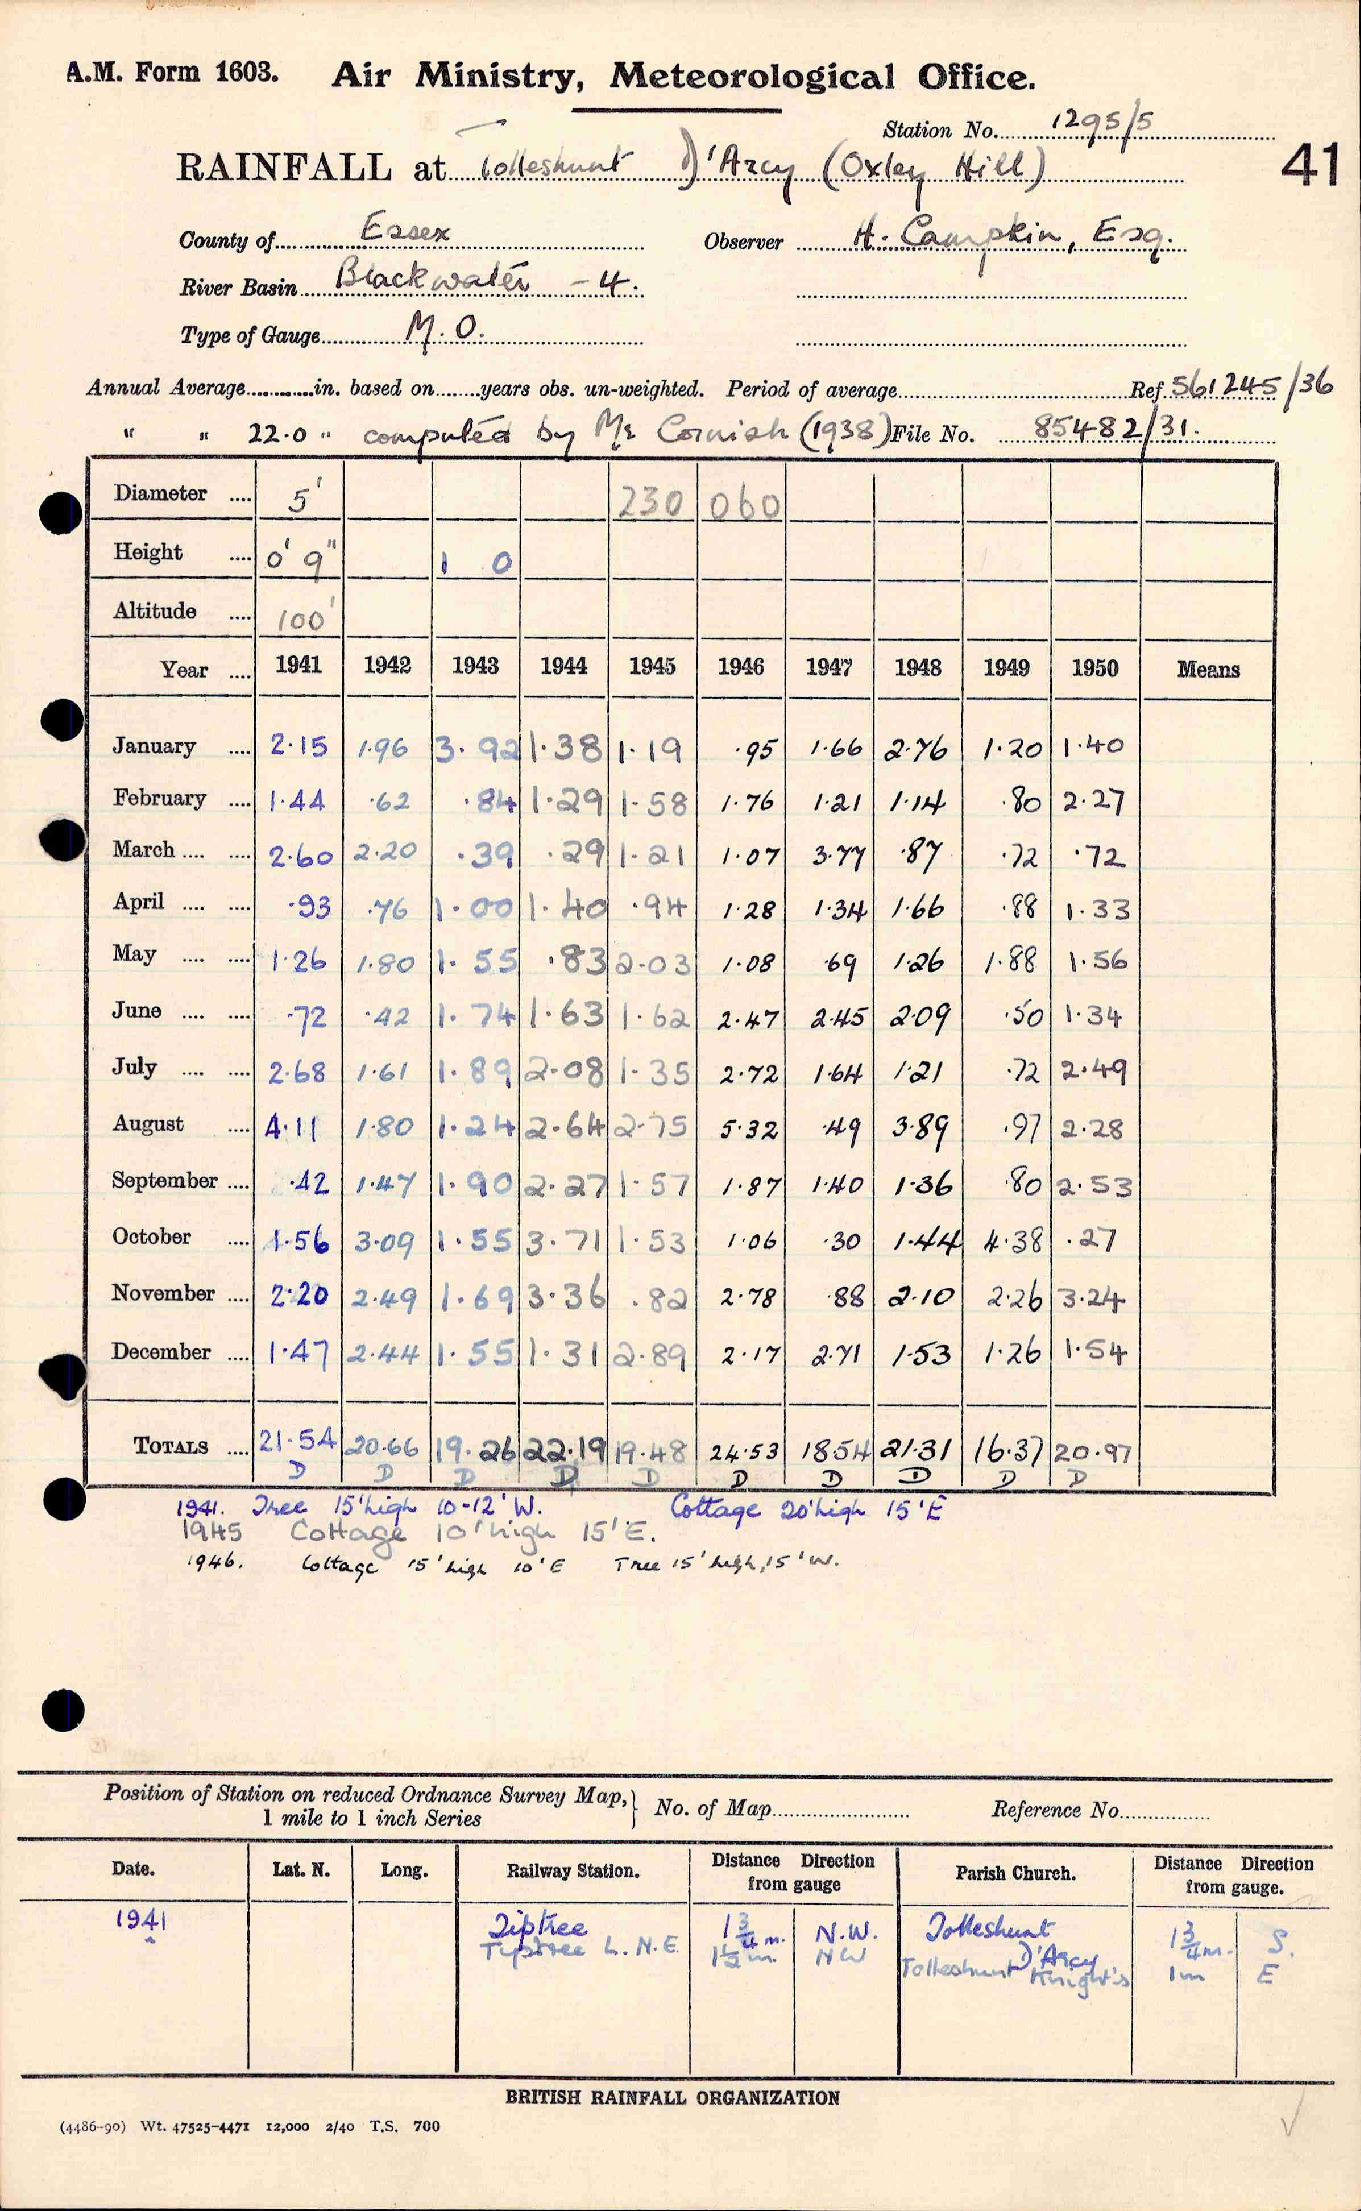 A.M. Form 1603. Air Ministry, Meteorological Office.
Station No. 1295/5
41
RAINFALL at Tolleshunt D'Arcy (Oxley Hill)
County of Essex Observer H. Campkin, Esq.
River Basin Blackwater - 4.
Type of Gauge M.O.
Annual Average in. based on years obs. un-weighted. Period of average Ref 561245/36
" " 22.0 " computed by Mr Cornish (1938) File No. 85482/31.
Diameter 5' 230 060
Height 0' 9" 1 0
Altitude 100'
Year 1941 1942 1943 1944 1945 1946 1947 1948 1949 1950 Means
January 2.15 1.96 3.92 1.38 1.19 .95 1.66 2.76 1.20 1.40
February 1.44 .62 .84 1.29 1.58 1.76 1.21 1.14 .80 2.27
March 2.60 2.20 .39 .29 1.21 1.07 3.77 .87 .72 .72
April .93 .76 1.00 1.40 .94 1.28 1.34 1.66 .88 1.33
May 1.26 1.80 1.55 .83 2.03 1.08 .69 1.26 1.88 1.56
June .72 .42 1.74 1.63 1.62 2.47 2.45 2.09 .50 1.34
July 2.68 1.61 1.89 2.08 1.35 2.72 1.64 1.21 .72 2.49
August 4.11 1.80 1.24 2.64 2.75 5.32 .49 3.89 .97 2.28
September .42 1.47 1.90 2.27 1.57 1.87 1.40 1.36 .80 2.53
October 1.56 3.09 1.55 3.71 1.53 1.06 .30 1.44 4.38 .27
November 2.20 2.49 1.69 3.36 .82 2.78 .88 2.10 2.26 3.24
December 1.47 2.44 1.55 1.31 2.89 2.17 2.71 1.53 1.26 1.54
TOTALS 21.54 20.66 19.26 22.19 19.48 24.53 18.54 21.31 16.37 20.97
D D D D D D D D D D
1941. Tree 15' high 10-12' W. Cottage 20' high 15' E
1945 Cottage 10' high 15' E.
1946. Cottage 15' high 10' E Tree 15' high, 15' W.
Position of Station on reduced Ordnance Survey Map, No. of Map Reference No.
1 mile to 1 inch Series
Date. Lat. N. Long. Railway Station. Distance Direction from gauge Parish Church. Distance Direction from gauge.
1941 Tiptree 1¾ m. N.W. Tolleshunt D'Arcy 1¾ m. S.
Tiptree L.N.E 1½ m. NW Tolleshunt Knight's 1m E
BRITISH RAINFALL ORGANIZATION
(4486-90) Wt. 47525-4471 12,000 2/40 T.S. 700